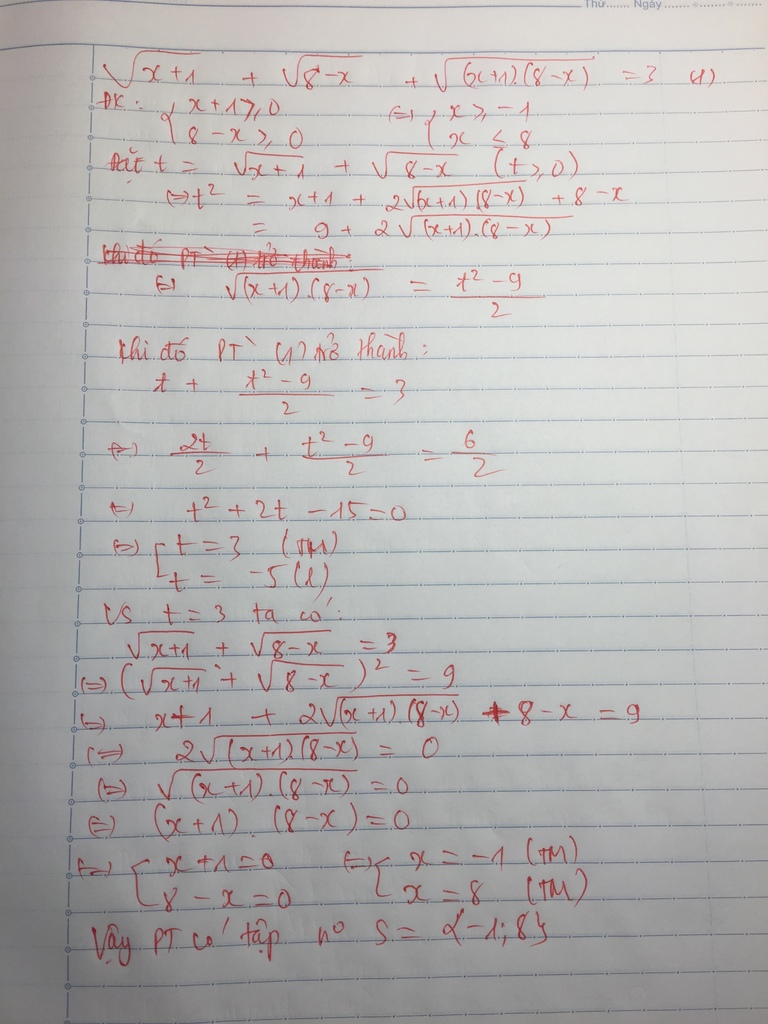 Thứ....... Ngày.......
√(x+1) + √(8-x) + √((x+1).(8-x)) = 3 (1)
ĐK: { x+1 ≥ 0 ⇔ { x ≥ -1
8-x ≥ 0 x ≤ 8
Đặt t = √(x+1) + √(8-x) (t ≥ 0)
⇔ t² = x+1 + 2√((x+1)(8-x)) + 8-x
= 9 + 2√((x+1).(8-x))
Khi đó PT (1) trở thành:
⇔ √((x+1).(8-x)) = (t²-9)/2
Khi đó PT (1) trở thành:
t + (t²-9)/2 = 3
⇔ 2t/2 + (t²-9)/2 = 6/2
⇔ t² + 2t - 15 = 0
⇔ [ t = 3 (TM)
t = -5 (l)
VS t = 3 ta có:
√(x+1) + √(8-x) = 3
⇔ (√(x+1) + √(8-x))² = 9
⇔ x+1 + 2√((x+1).(8-x)) + 8-x = 9
⇔ 2√((x+1).(8-x)) = 0
⇔ √((x+1).(8-x)) = 0
⇔ (x+1).(8-x) = 0
⇔ [ x+1=0 ⇔ [ x = -1 (TM)
8-x=0 x = 8 (TM)
Vậy PT có tập n° S = {-1; 8}